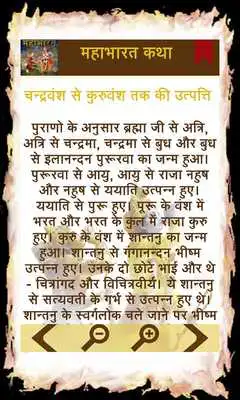 महाभारत
महाभारत कथा
चन्द्रवंश से कुरुवंश तक की उत्पत्ति
पुराणो के अनुसार ब्रह्मा जी से अत्रि,
अत्रि से चन्द्रमा, चन्द्रमा से बुध और बुध
से इलानन्दन पुरूरवा का जन्म हुआ।
पुरूरवा से आयु, आयु से राजा नहुष
और नहुष से ययाति उत्पन्न हुए।
ययाति से पुरू हुए। पूरू के वंश में
भरत और भरत के कुल में राजा कुरु
हुए। कुरु के वंश में शान्तनु का जन्म
हुआ। शान्तनु से गंगानन्दन भीष्म
उत्पन्न हुए। उनके दो छोटे भाई और थे
- चित्रांगद और विचित्रवीर्य। ये शान्तनु
से सत्यवती के गर्भ से उत्पन्न हुए थे।
शान्तनु के स्वर्गलोक चले जाने पर भीष्म